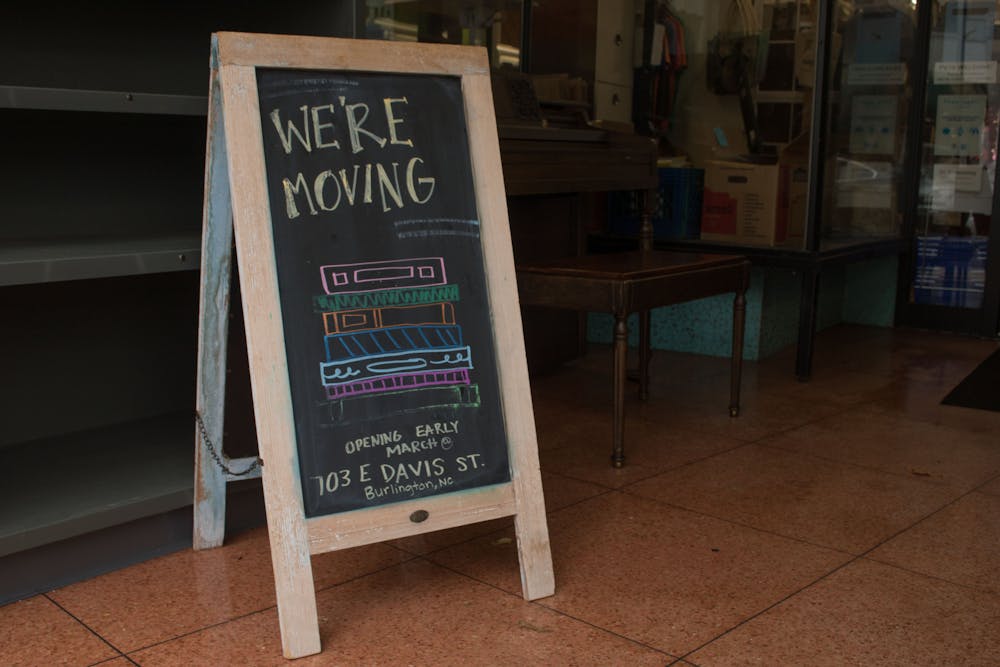 WE'RE
MOVING
OPENING EARLY
MARCH @
103 E DAVIS ST.
Burlington, NC